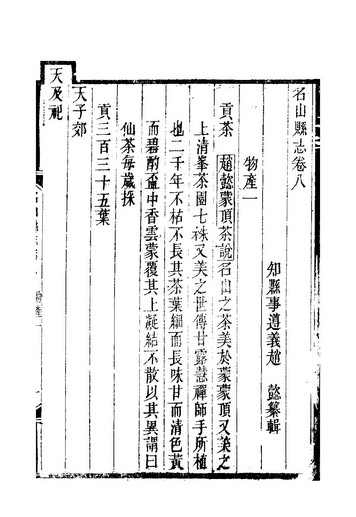 名山縣志卷八
知縣事遵義趙 懿纂輯
物產一
貢茶 趙懿蒙頂茶說名山之茶美於蒙蒙頂又美之
上清峯茶園七株又美之世傳甘露慧禪師手所植
也二千年不枯不長其茶葉細而長味甘而清色黃
而碧酌盃中香雲蒙覆其上凝結不散以其異謂曰
仙茶每歲採
貢三百三十五葉
天子郊
天及祀